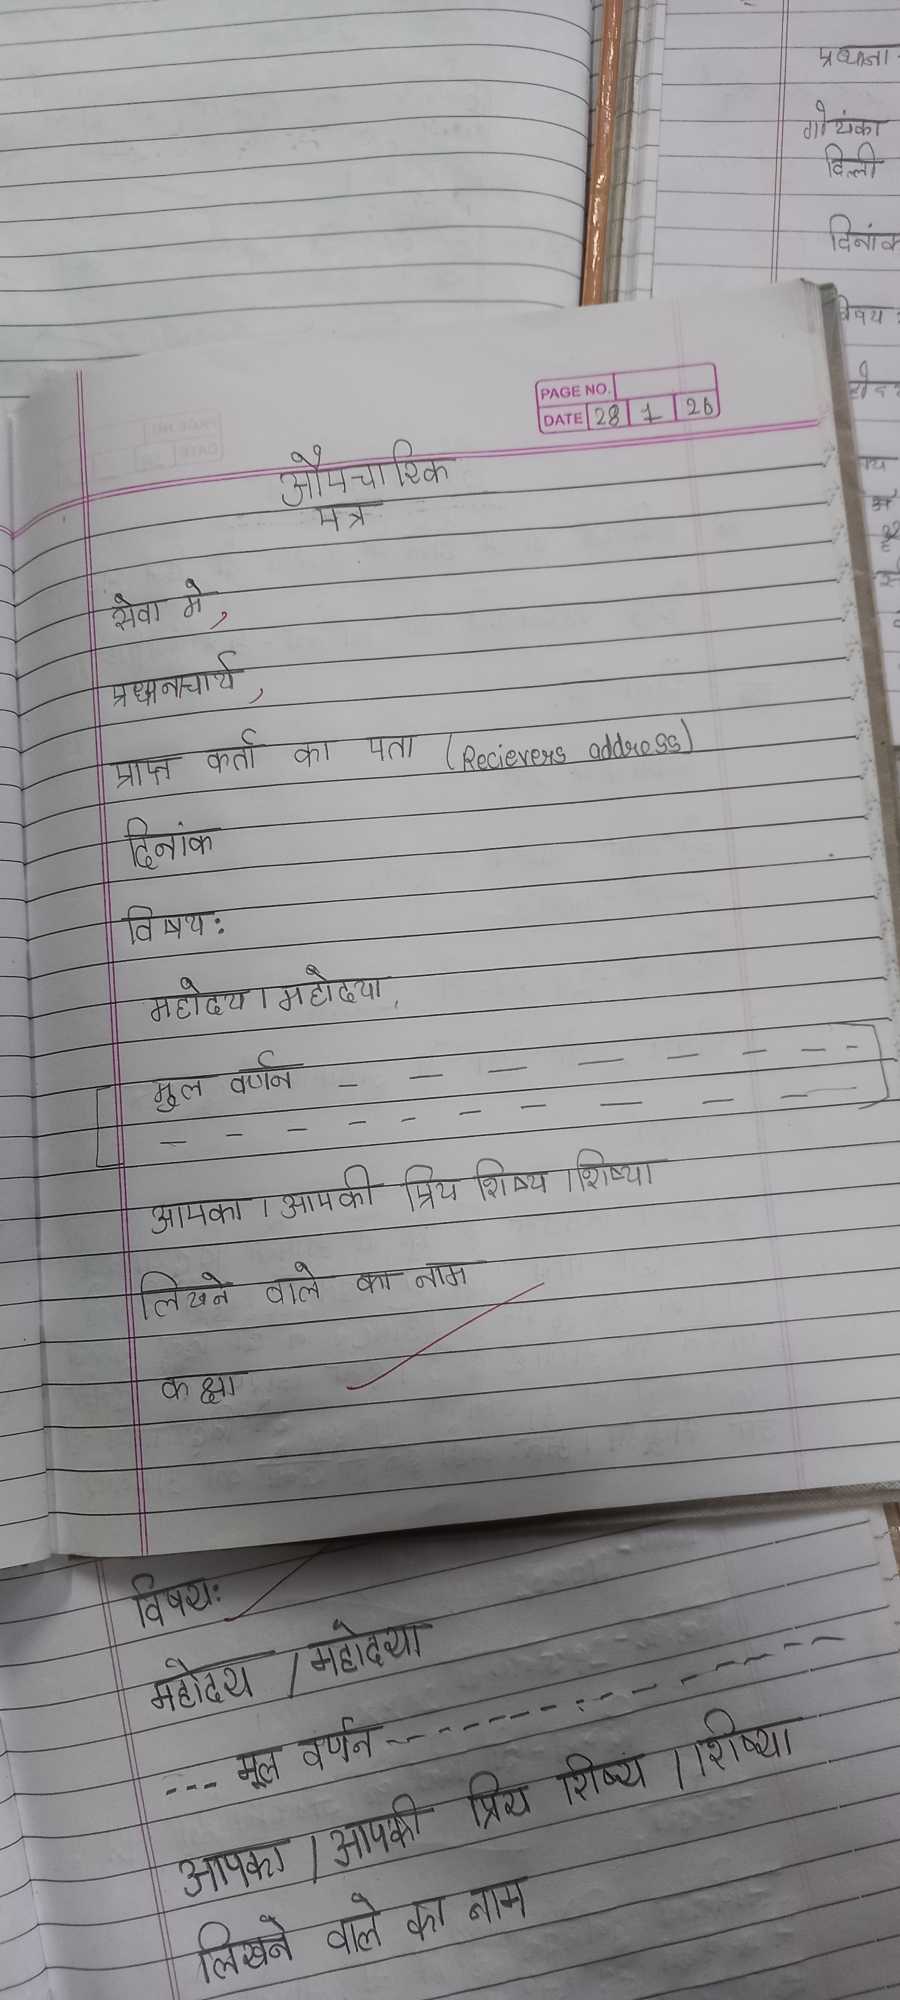 प्रधाना
गोयंका
दिल्ली
दिनांक
विषय :
PAGE NO.
DATE 28 1 26
औपचारिक
पत्र
सेवा मे,
प्रधानाचार्य,
प्राप्त कर्ता का पता (Recievers address)
दिनांक
विषय:
महोदय । महोदया,
मुल वर्णन – – – – – – –
– – – – – – – – – – –
आपका । आपकी प्रिय शिष्य । शिष्या
लिखने वाले का नाम
कक्षा
विषय:
महोदय / महोदया
--- मूल वर्णन ---------------
आपका / आपकी प्रिय शिष्य / शिष्या
लिखने वाले का नाम